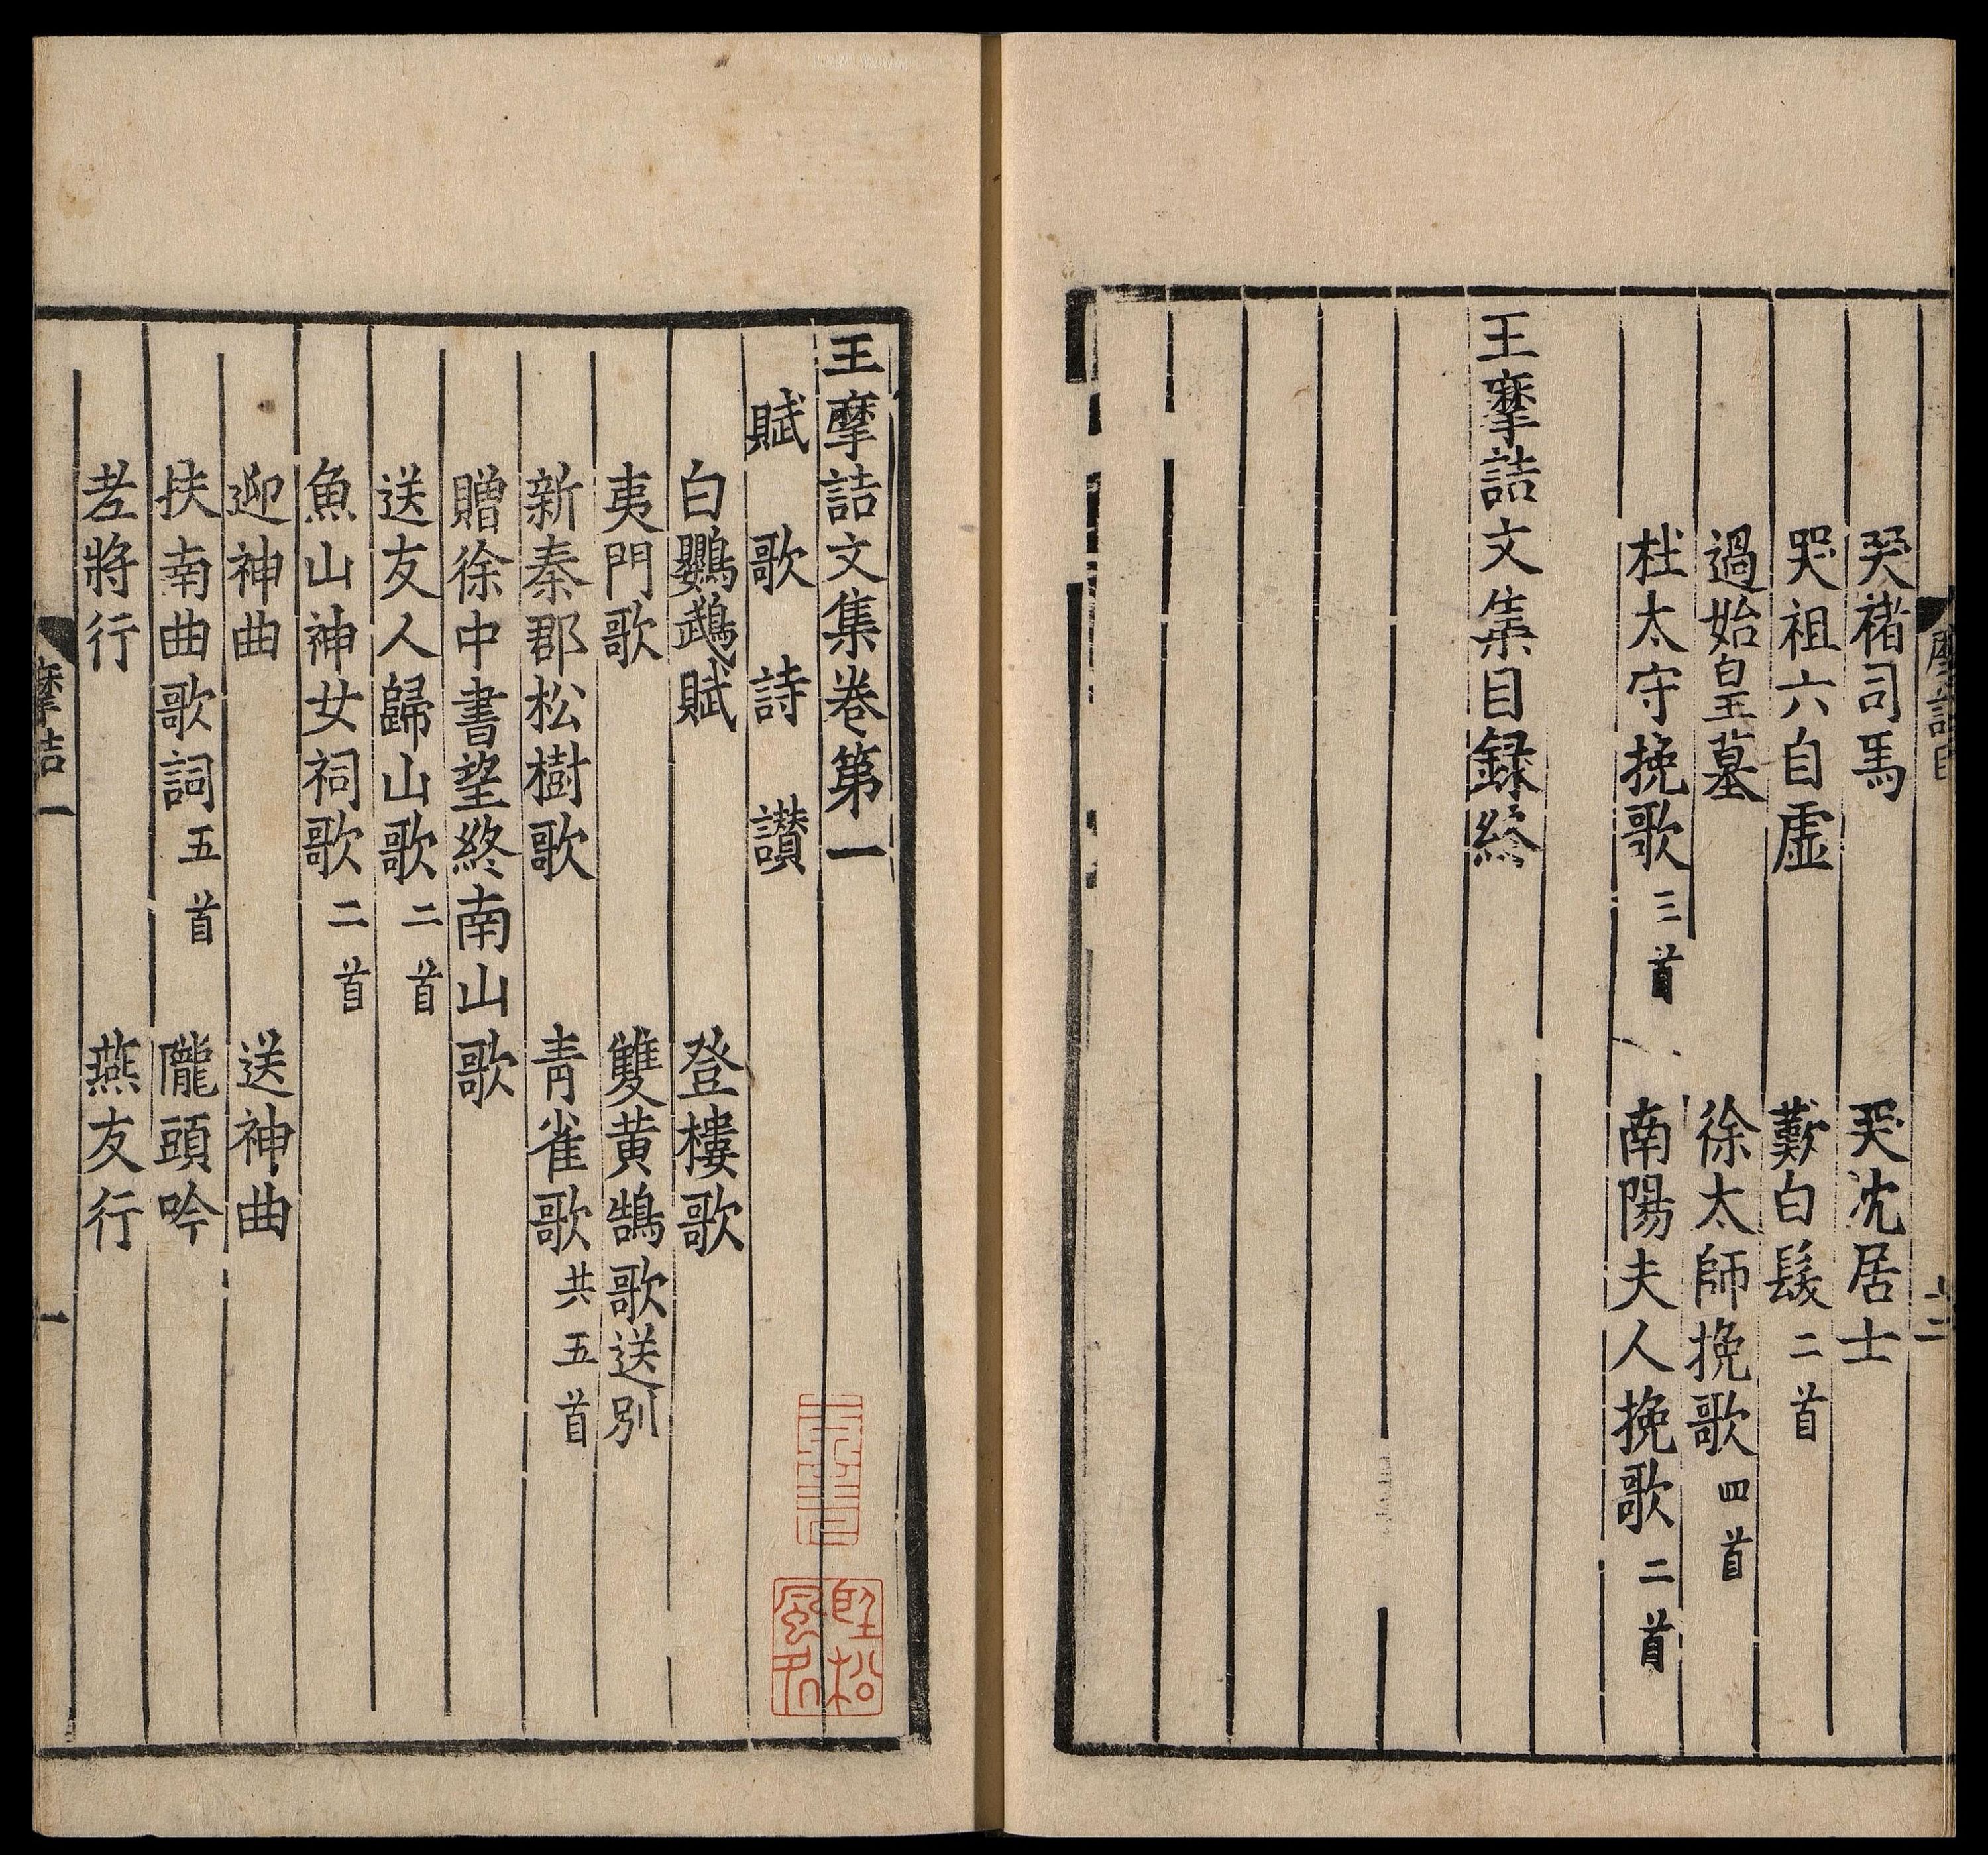 哭褚司馬　哭沈居士
哭祖六自虛　歎白髮二首
過始皇墓　徐太師挽歌四首
杜太守挽歌三首　南陽夫人挽歌二首
王摩詰文集目録終
王摩詰文集卷第一
賦　歌　詩　讃
白鸚鵡賦　登樓歌
夷門歌　雙黄鵠歌送别
新秦郡松樹歌　青雀歌共五首
贈徐中書望終南山歌
送友人歸山歌二首
魚山神女祠歌二首
迎神曲　送神曲
扶南曲歌詞五首　隴頭吟
老將行　燕友行
摩詰一
一